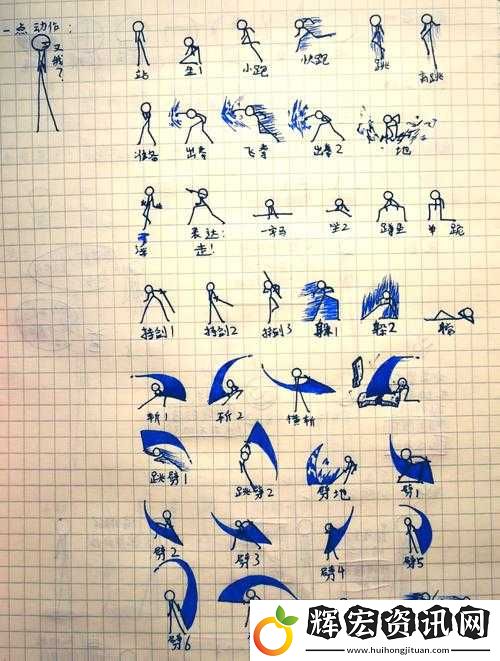 一点动作:
又饿了?
站
坐1
小跑
快跑
跳
高跳
准备
出拳
飞拳
出拳2
地
表达:
走!
一字马
坐2
蹲坐
单跪
持剑1
持剑2
持剑3
躲1
躲2
躺
斩1
斩2
横斩
跳劈1
跳劈2
劈地
劈1
劈2
劈3
劈4
劈5
劈6
辉宏资讯网
www.huihongjituan.com